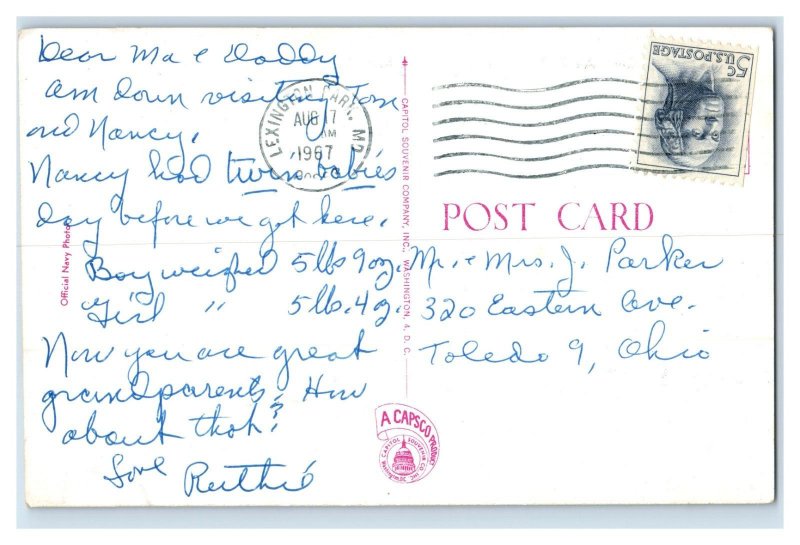 Dear Ma & Daddy
am down visiting Tom
and Nancy.
Nancy had twin babies
day before we got here.
Boy weighed 5 lbs 9 oz.
Girl " 5 lb. 4 oz.
Now you are great
grandparents. How
about that?
Love
Ruthie
Official Navy Photo
CAPITOL SOUVENIR COMPANY, INC., WASHINGTON 4, D. C.
A CAPSCO PRODUCT
CAPITOL SOUVENIR CO INC
LEXINGTON PARK, MD.
AUG 17
AM
1967
5c U.S. POSTAGE
POST CARD
Mr. & Mrs. J. Parker
320 Eastern Ave.
Toledo 9, Ohio